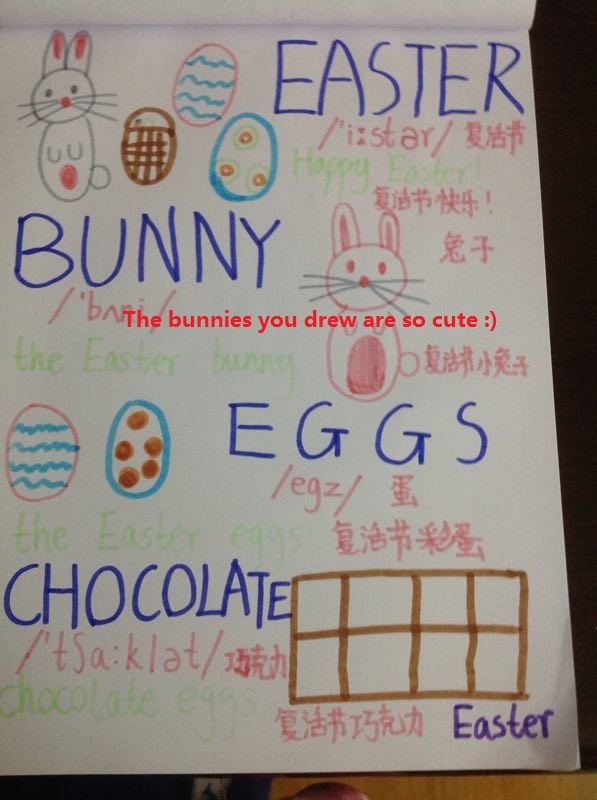 EASTER
/'i:stər/ 复活节
Happy Easter!
复活节快乐！
BUNNY
兔子
/'bʌni/
The bunnies you drew are so cute :)
the Easter bunny
复活节小兔子
EGGS
/egz/ 蛋
the Easter eggs 复活节彩蛋
CHOCOLATE
/'tʃɑ:klət/ 巧克力
chocolate eggs
复活节巧克力
Easter